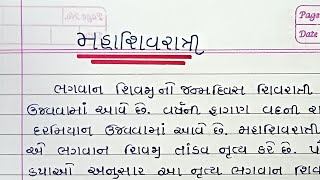 Page
Date
મહાશિવરાત્રી
ભગવાન શિવમુ નો જન્મદિવસ શિવરાત્રી
ઉજવવામાં આવે છે. વર્ષની ફાગણ વદની
દરમિયાન ઉજવવામાં આવે. મહાશિવરાતી
એ ભગવાન શિવમુ તાંડવ નૃત્ય કરે છે.
કથાઓ અનુસાર આ નૃત્ય ભગવાન શિવ